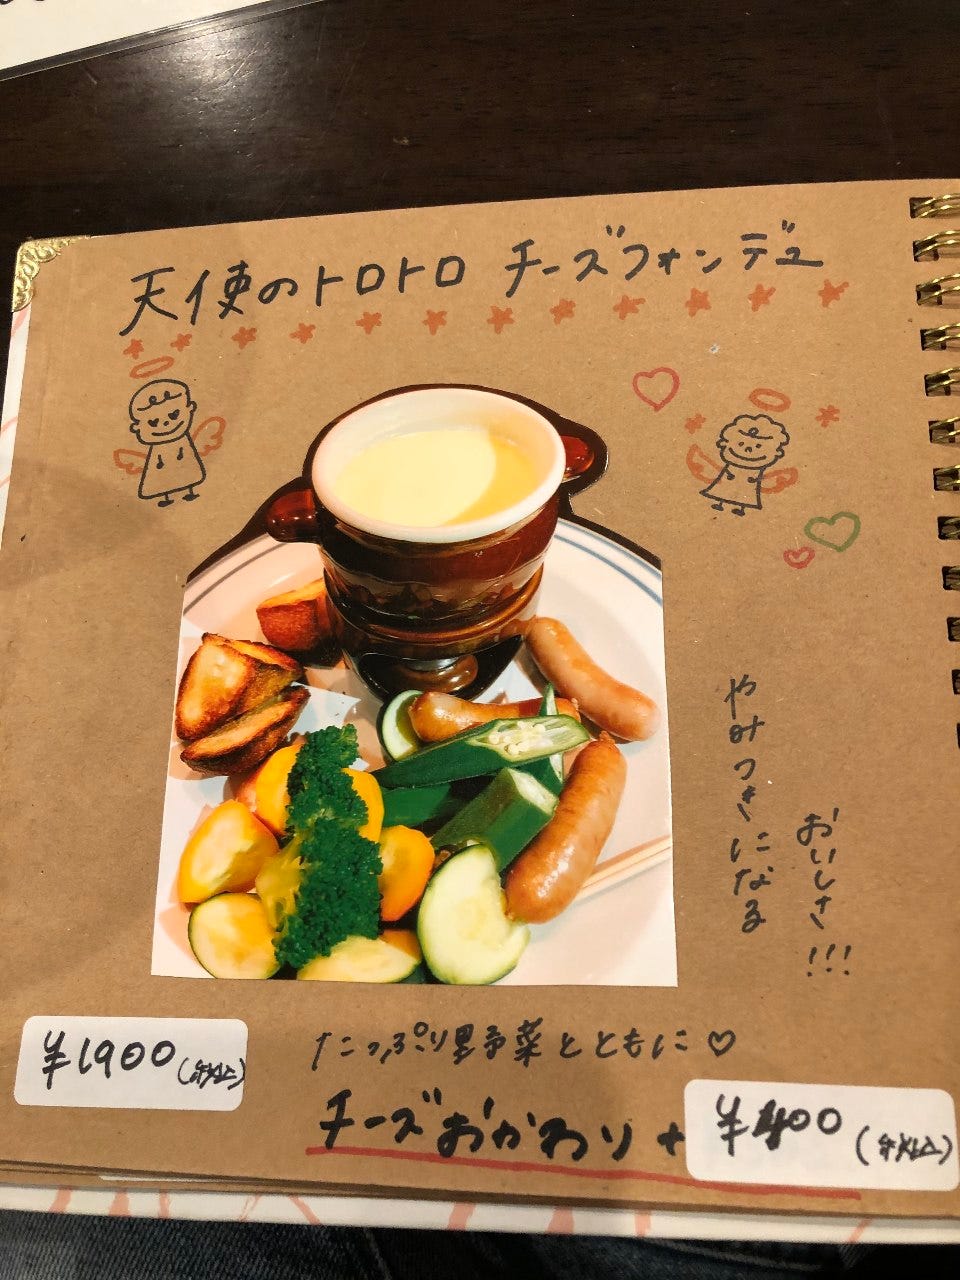 天使のトロトロ チーズフォンデュ
やみつきになる
おいしさ!!!
たっぷり野菜とともに♡
¥1900(税込)
チーズおかわり + ¥400(税込)